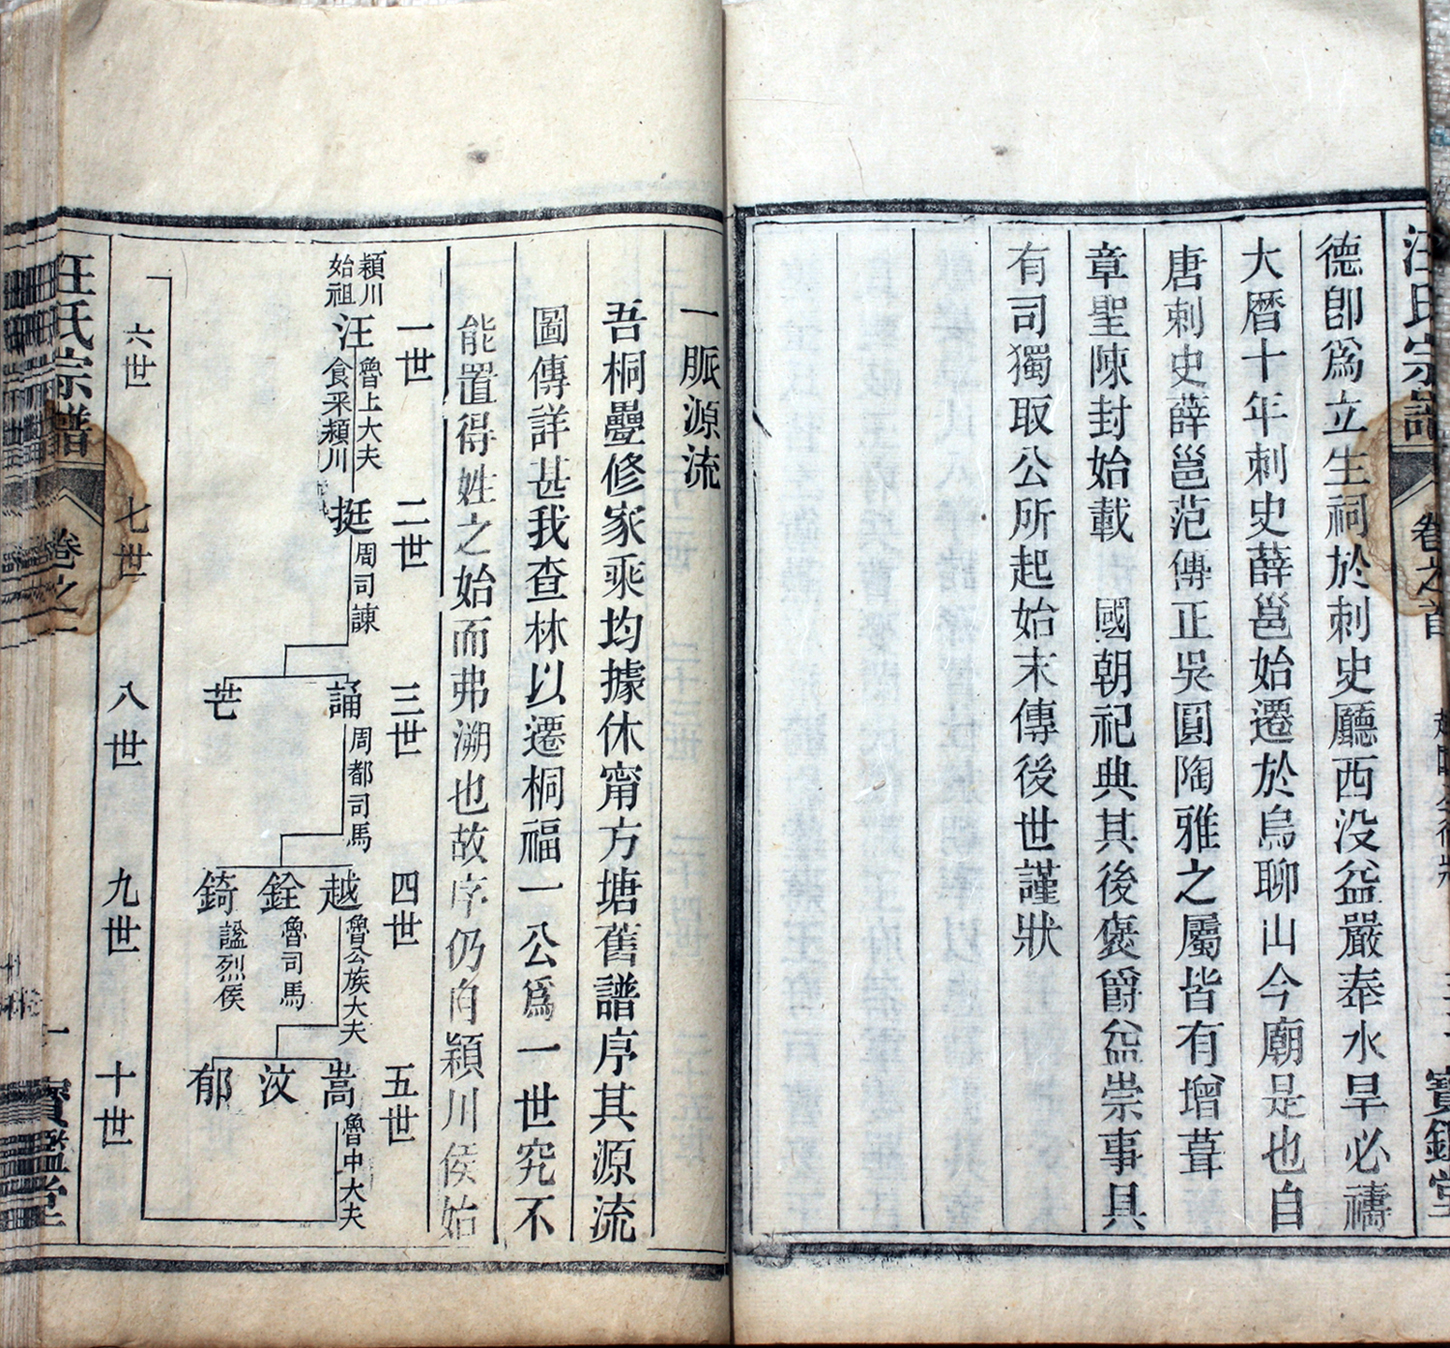 德卽爲立生祠於刺史廳西没益嚴奉水旱必禱
大曆十年刺史薛邕始遷於烏聊山今廟是也自
唐刺史薛邕范傳正吳圓陶雅之屬皆有增葺
章聖陳封始載　國朝祀典其後褒爵益崇事具
有司獨取公所起始末傳後世謹狀
一脈源流
吾桐疊修家乘均據休甯方塘舊譜序其源流
圖傳詳甚我查林以遷桐福一公爲一世究不
能置得姓之始而弗溯也故序仍自潁川侯始
一世
二世
三世
四世
五世
潁川
始祖
汪
魯上大夫
食采潁川
挺
周司諫
誦
周都司馬
芒
越
魯公族大夫
銓
魯司馬
錡
諡烈侯
嵩
魯中大夫
汶
郁
六世
七世
八世
九世
十世
汪氏宗譜
卷之一
一
寶鑑堂